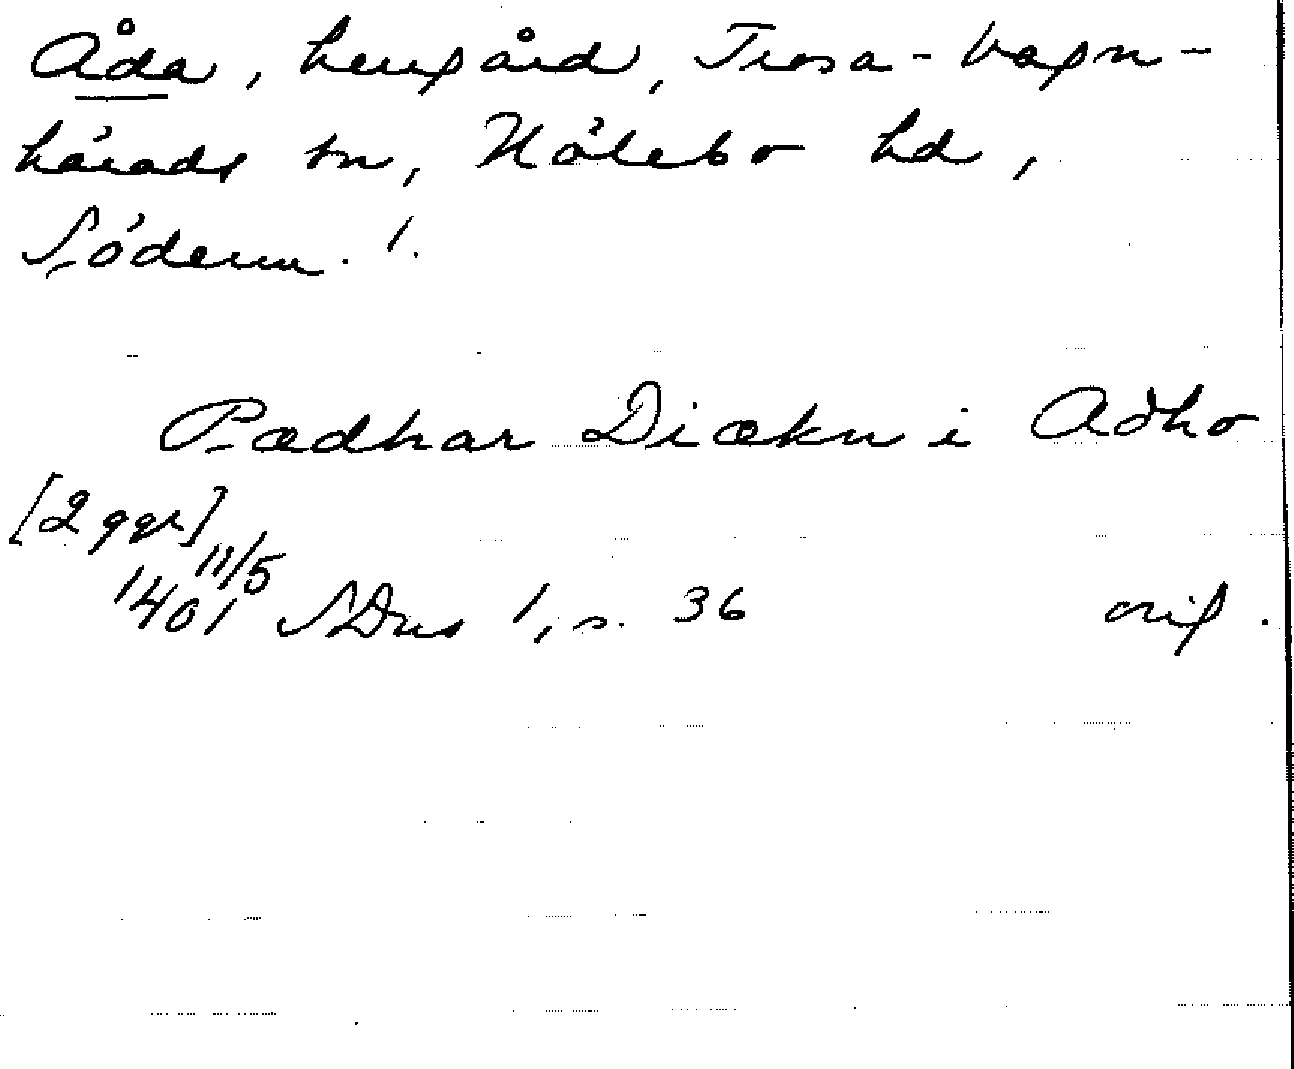 Åda, herrgård, Trosa-Vagn-
härads sn, Hölebo hd,
Söderm. l.
Pædhar Diækn i Adho
[2 ggr]
11/5
1401 SDns 1, s. 36 orig.